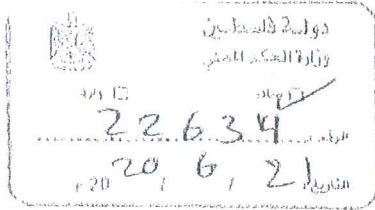 دولة فلسطين
وزارة الحكم المحلي
وارد
الرقم 22634
التاريخ 21 / 6 / 2020م